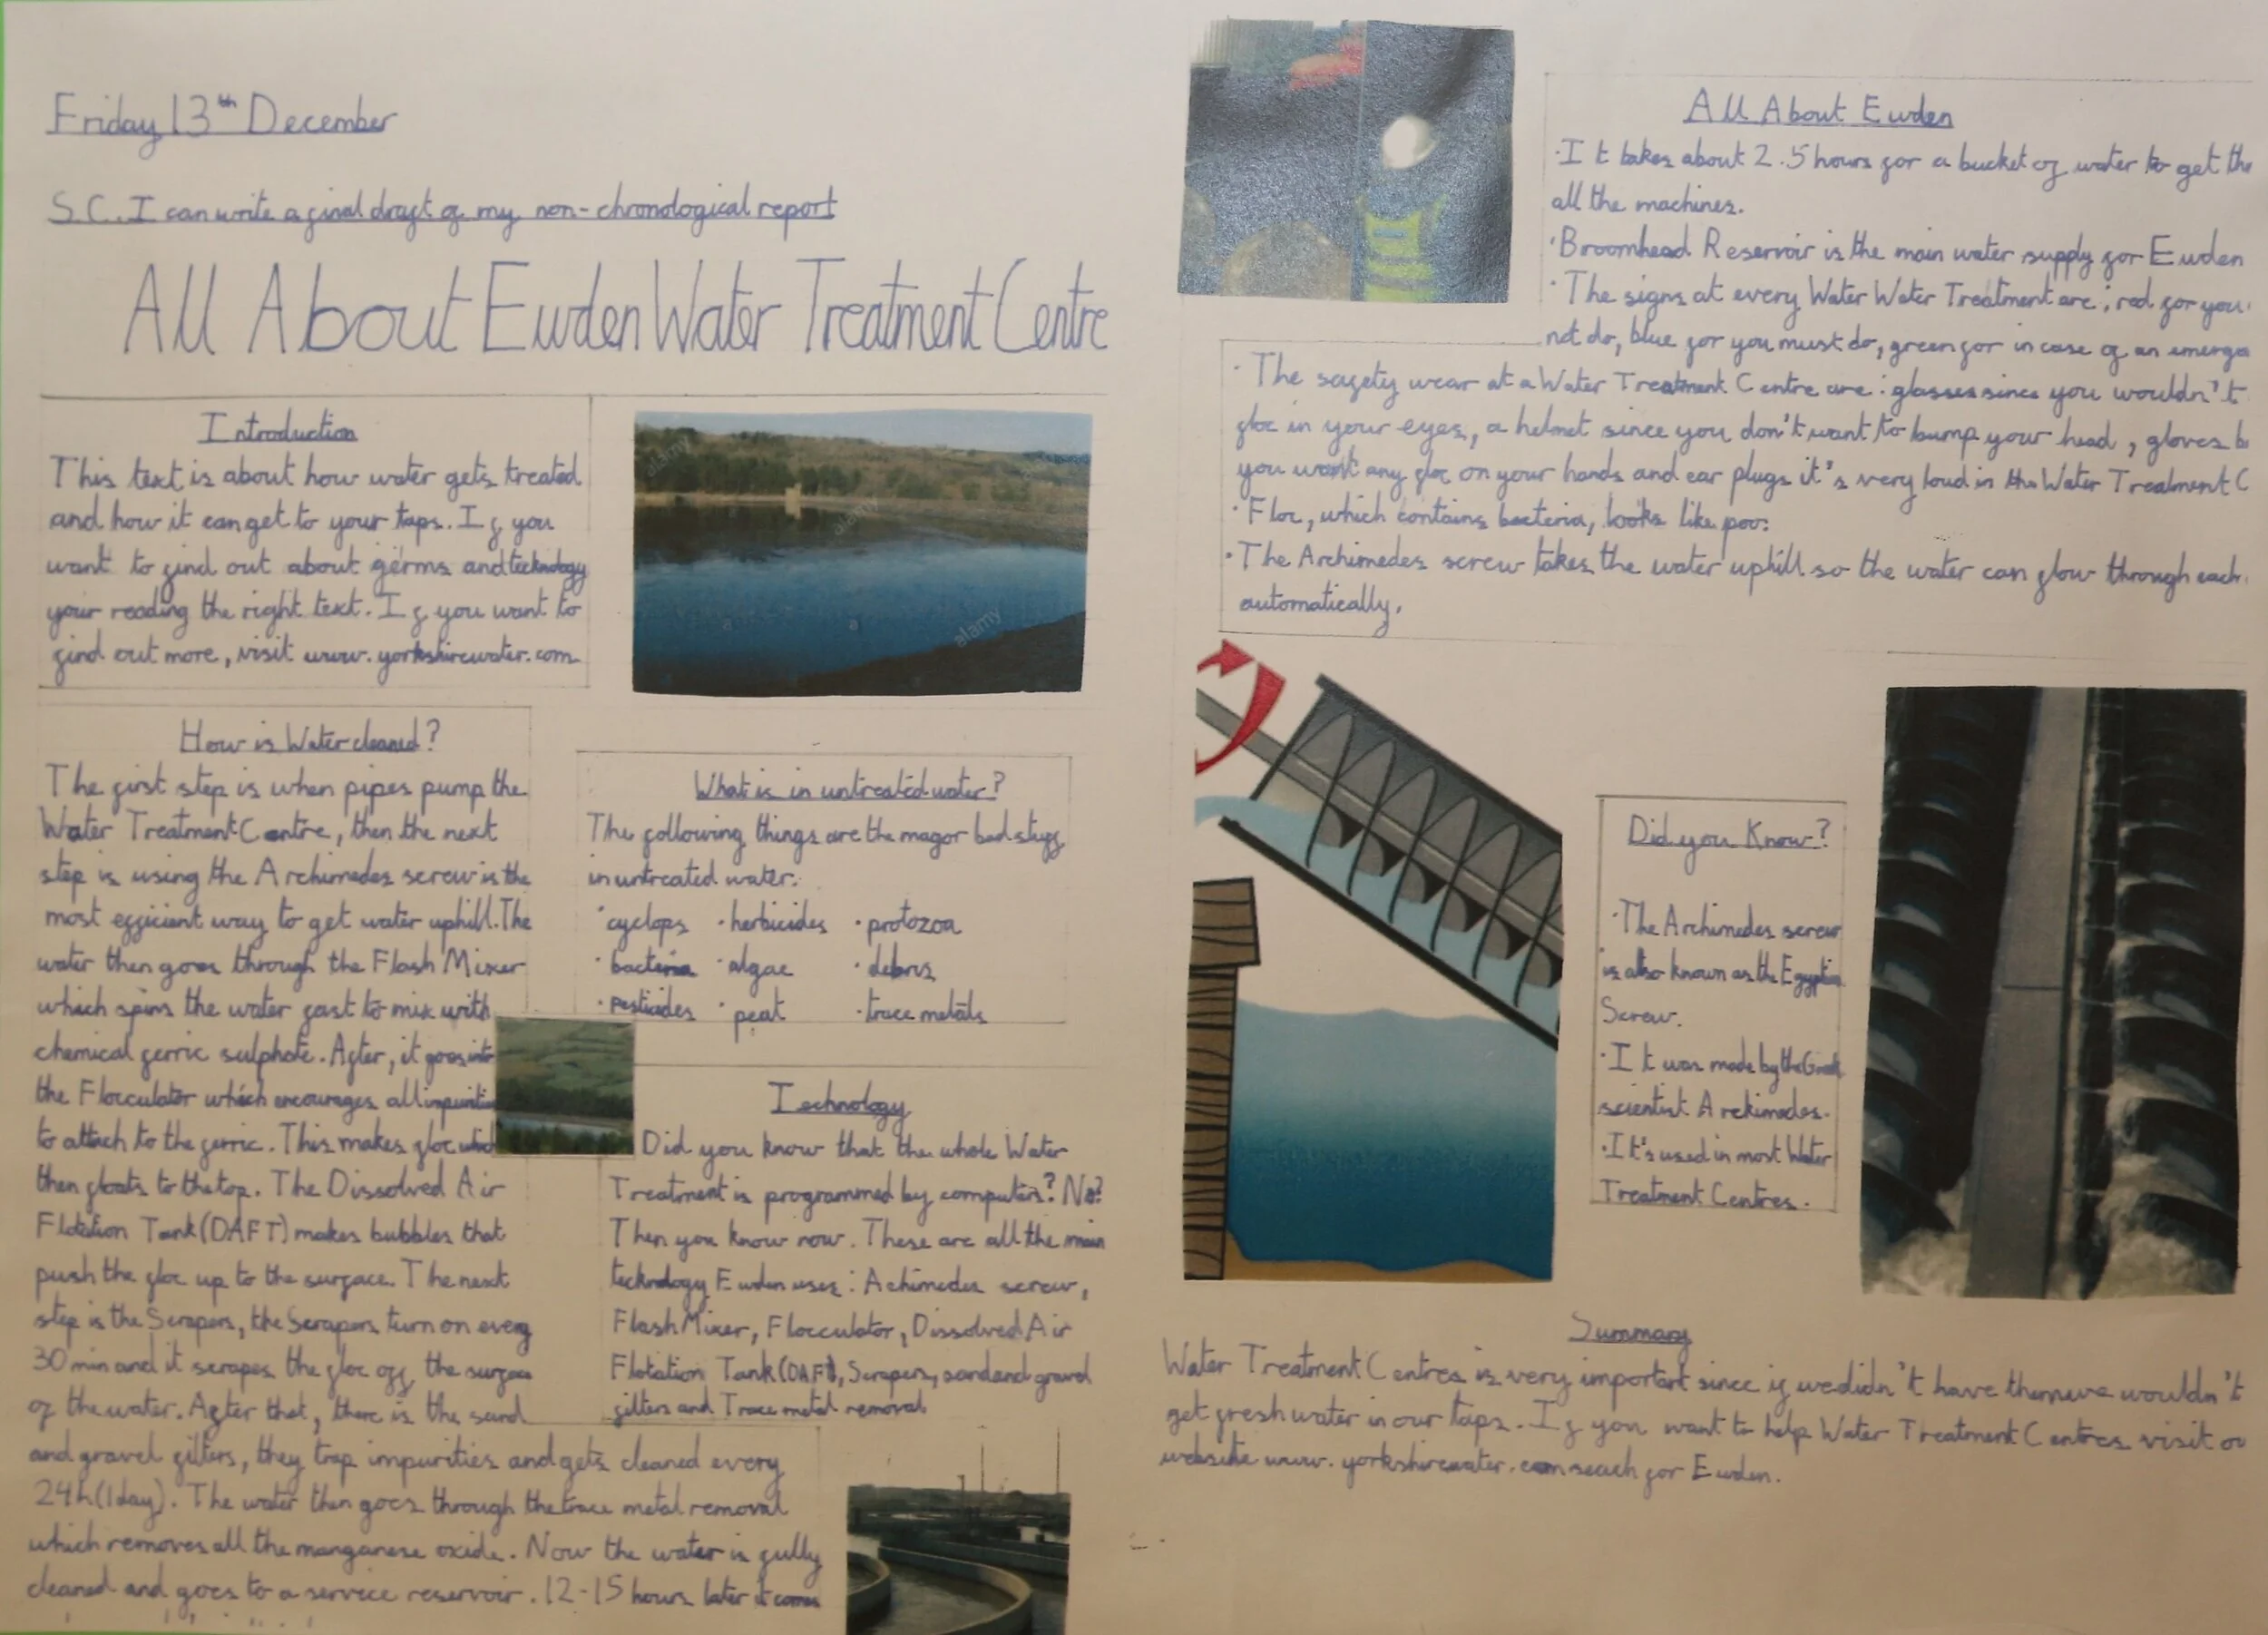 Friday 13th December
S.C. I can write a final draft of my non-chronological report
All About Ewden Water Treatment Centre
Introduction
This text is about how water gets treated
and how it can get to your taps. If you
want to find out about germs and technology
your reading the right text. If you want to
find out more, visit www.yorkshirewater.com
alamy
alamy
alamy
a
a
alamy
How is Water cleaned?
The first step is when pipes pump the
Water Treatment Centre, then the next
step is using the Archimedes screw is the
most efficient way to get water uphill. The
water then goes through the Flash Mixer
which spins the water fast to mix with
chemical ferric sulphate. After, it goes into
the Flocculator which encourages all impurities
to attach to the ferric. This makes floc which
then floats to the top. The Dissolved Air
Flotation Tank (DAFT) makes bubbles that
push the floc up to the surface. The next
step is the Scrapers, the Scrapers turn on every
30 min and it scrapes the floc off the surface
of the water. After that, there is the sand
and gravel filters, they trap impurities and gets cleaned every
24h (1 day). The water then goes through the trace metal removal
which removes all the manganese oxide. Now the water is fully
cleaned and goes to a service reservoir. 12-15 hours later it comes
What is in untreated water?
The following things are the magor bad stuff
in untreated water:
·cyclops ·herbicides ·protozoa
·bacteria ·algae ·debris
·pesticides ·peat ·trace metals
Technology
Did you know that the whole Water
Treatment is programmed by computers? No?
Then you know now. These are all the main
technology Ewden uses: Achimedes screw,
Flash Mixer, Flocculator, Dissolved Air
Flotation Tank (DAFT), Scrapers, sand and gravel
filters and Trace metal removal
All About Ewden
·It takes about 2.5 hours for a bucket of water to get
all the machines.
·Broomhead Reservoir is the main water supply for Ewden
·The signs at every Water Water Treatment are; red for you
not do, blue for you must do, green for in case of an
·The safety wear at a Water Treatment Centre are: glasses since you wouldn't
floc in your eyes, a helmet since you don't want to bump your head, gloves
you want any floc on your hands and ear plugs it's very loud in the Water Treatment C
·Floc, which contains bacteria, looks like poo:
·The Archimedes screw takes the water uphill so the water can flow through each
automatically.
Did you Know?
·The Archimedes screw
is also known as the Egyptian
Screw.
·It was made by the Greek
scientist Arckimedes.
·It's used in most Water
Treatment Centres.
Summary
Water Treatment Centres is very important since if we didn't have them we wouldn't
get fresh water in our taps. If you want to help Water Treatment Centres visit
website www.yorkshirewater.com seach for Ewden.